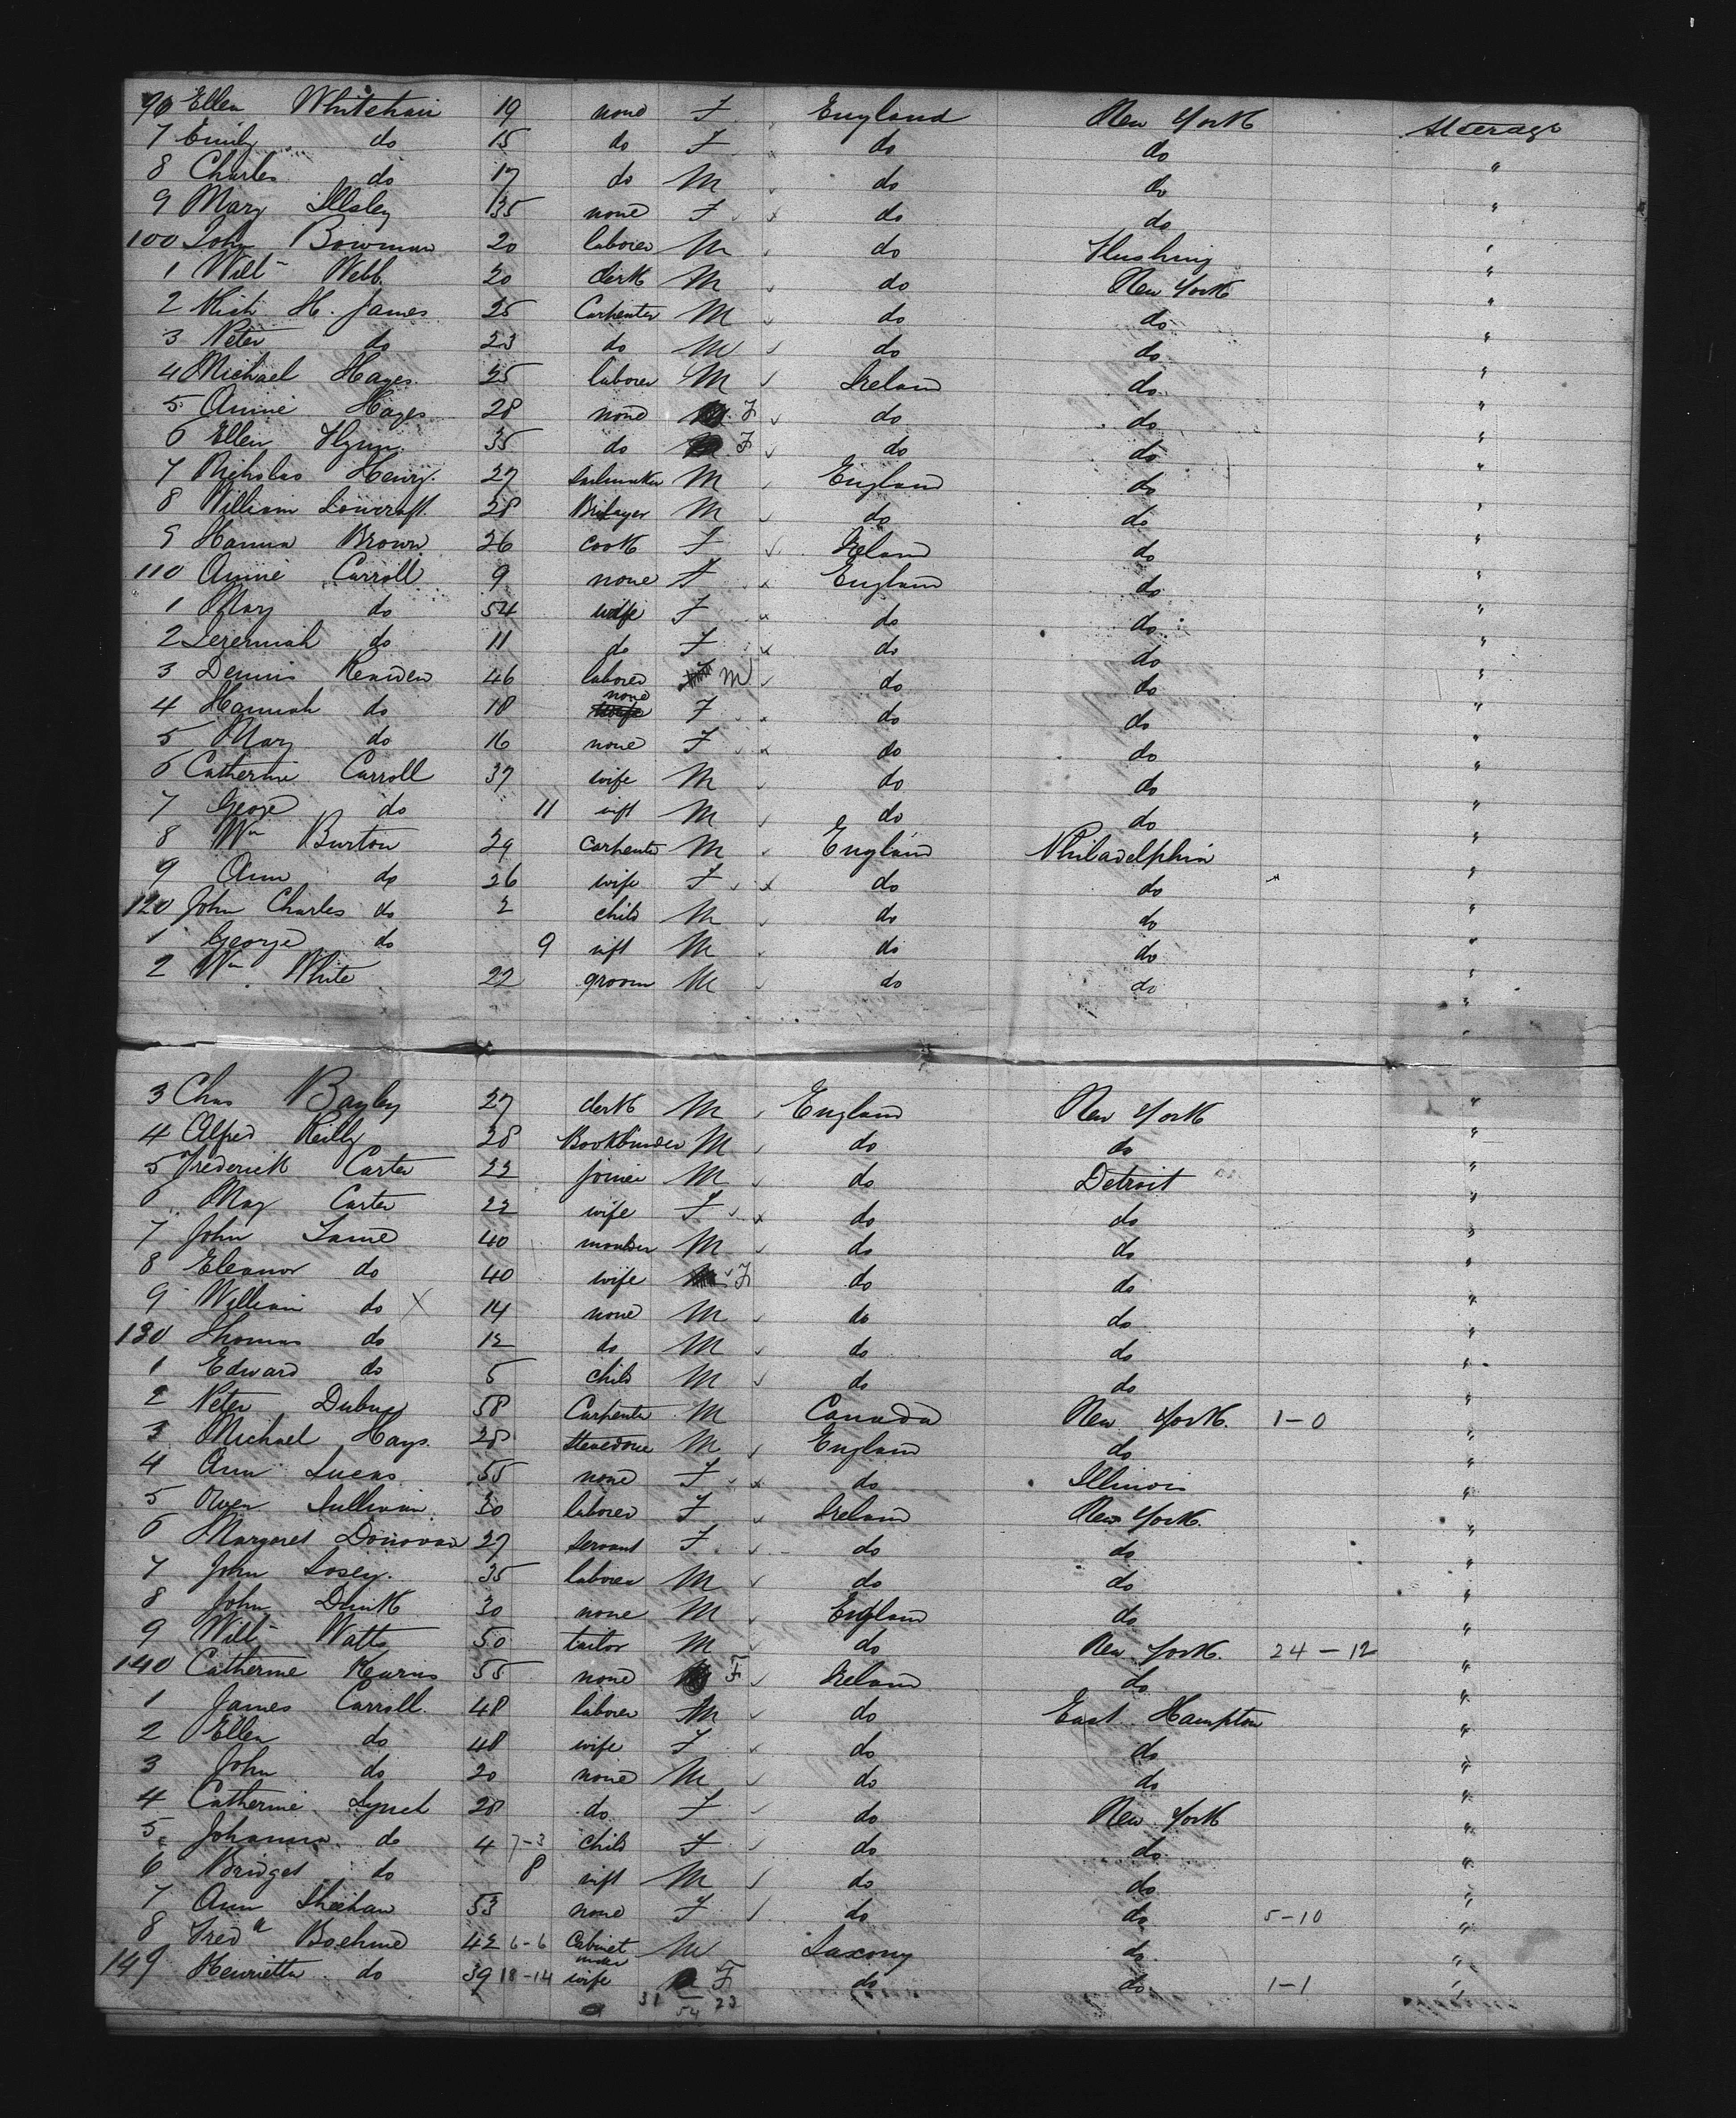 96 Ellen Whitehair 19 none F England New York Steerage
7 Emily do 15 do F do do "
8 Charles do 17 do M do do "
9 Mary Illsley 35 none F do do "
100 John Bowman 20 laborer M do Flushing "
1 Will Webb 20 clerk M do New York "
2 H. James 25 Carpenter M do do "
3 Peter do 23 do M do do "
4 Michael Hayes 25 laborer M Ireland do "
5 Annie Hayes 28 none F do do "
6 Ellen Flynn 35 do F do do "
7 Nicholas Henry 27 Sailmaker M England do "
8 William Lowcraft 28 M do do "
9 Hanna Brown 26 cook F Ireland do "
110 Annie Carroll 9 none F England do "
1 Mary do 54 wife F do do "
2 Jeremiah do 11 do F do do "
3 Dennis 46 laborer M do do "
4 Hannah do 18 none F do do "
5 Mary do 16 none F do do "
6 Catherine Carroll 37 wife M do do "
7 George do 11 inft M do do "
8 Wm Burton 29 Carpenter M England Philadelphia "
9 Ann do 26 wife F do do "
120 John Charles do 2 child M do do "
1 George do 9 inft M do do "
2 Wm White 22 groom M do do "
3 Chas Bayley 27 clerk M England New York "
4 Alfred Reilly 28 Bookbinder M do do "
5 Frederick Carter 22 joiner M do Detroit "
6 May Carter 22 wife F do do "
7 John 40 moulder M do do "
8 Eleanor do 40 wife F do do "
9 William do X 14 none M do do "
130 Thomas do 12 do M do do "
1 Edward do 5 child M do do "
2 Peter 58 Carpenter M Canada New York. 1-0 "
3 Michael Hays 28 Stevedore M England do "
4 Ann Lucas 55 none F do Illinois "
5 Owen Sullivan 30 laborer F Ireland New York. "
6 Margaret Donovan 27 Servant F do do "
7 John Losey 35 laborer M do do "
8 John Dunk 30 none M England do "
9 Will Watts 50 tailor M do New York. 24-12 "
140 Catherine Kearns 55 none F Ireland do "
1 James Carroll 48 laborer M do East Hampton "
2 Ellen do 48 wife F do do "
3 John do 20 none M do do "
4 Catherine Lynch 28 do F do New York "
5 Johanna do 4 7-3 child F do do "
6 Bridget do 8 inft M do do "
7 Ann Sheehan 53 none F do do 5-10 "
8 Fredk Boehme 42 6-6 Cabinet maker M Saxony do "
149 Henrietta do 39 18-14 wife F do do 1-1 "
31 54 23